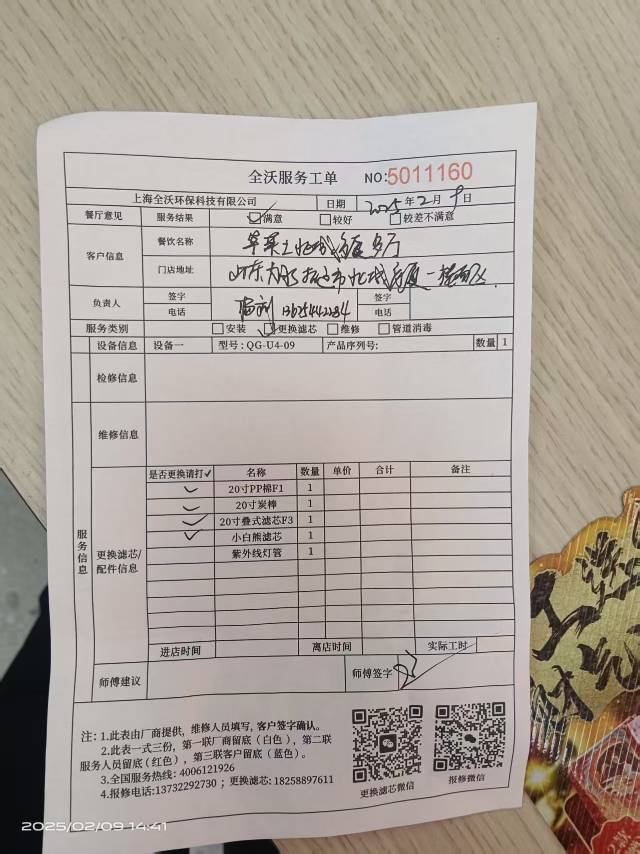 全沃服务工单 NO:5011160
上海全沃环保科技有限公司 日期 2025年2月9日
餐厅意见 服务结果 ☑满意 □较好 □较差不满意
客户信息 餐饮名称
门店地址 山东
负责人 签字 签字
电话 电话
服务类别 □安装 ☑更换滤芯 □维修 □管道消毒
设备信息 设备一 型号:QG-U4-09 产品序列号: 数量 1
检修信息
维修信息
服务信息
更换滤芯/配件信息
是否更换请打✓ 名称 数量 单价 合计 备注
✓ 20寸PP棉F1 1
✓ 20寸炭棒 1
✓ 20寸叠式滤芯F3 1
✓ 小白熊滤芯 1
紫外线灯管 1
进店时间 离店时间 实际工时
师傅建议 师傅签字
注:1.此表由厂商提供,维修人员填写,客户签字确认。
2.此表一式三份,第一联厂商留底(白色),第二联
服务人员留底(红色),第三联客户留底(蓝色)。
3.全国服务热线:4006121926
4.报修电话:13732292730;更换滤芯:18258897611
更换滤芯微信 报修微信
2025/02/09 14:41